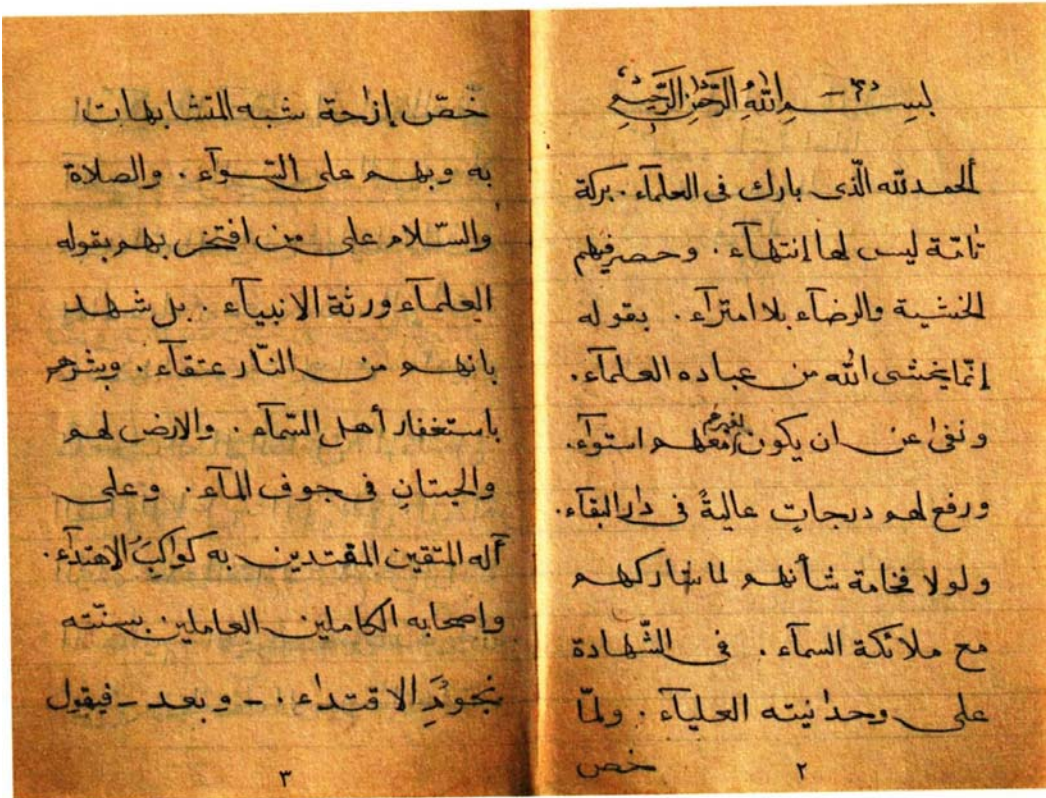 بسم الله الرحمن الرحيم
ألحمد لله الّذى بارك فى العلمآء . بركة
تامّة ليس لها إنتهآء . وحصر فيهم
الخشية والرضآء بلا امترآء . بقوله
إنّما يخشى الله من عباده العلمآء .
ونفىٰ عن ان يكون لغيرهم معهم استوآء .
ورفع لهم درجاتٍ عاليةً فى دار البقآء .
ولولا فخامة شأنهم لما شاركهم
مع ملائكة السمآء . فى الشّهادة
على وحدانيته العليآء . ولمّا
خص
٢
خصّ إزاحة شبه المتشابهات
به وبهم على السّوآء . والصلاة
والسّلام على من افتخر بهم بقوله
العلمآء ورثة الانبيآء . بل شهد
بانهم من النّار عتقآء . وبشرهم
باستغفار أهل السّمآء . والارض لهم
والحيتانِ فى جوف المآء . وعلى
آله المتقين المقتدين به كواكبُ الاهتدآء .
واصحابه الكاملين العاملين بسنّته
نجومَ الاقتدآء . - وبعد - فيقول
٣